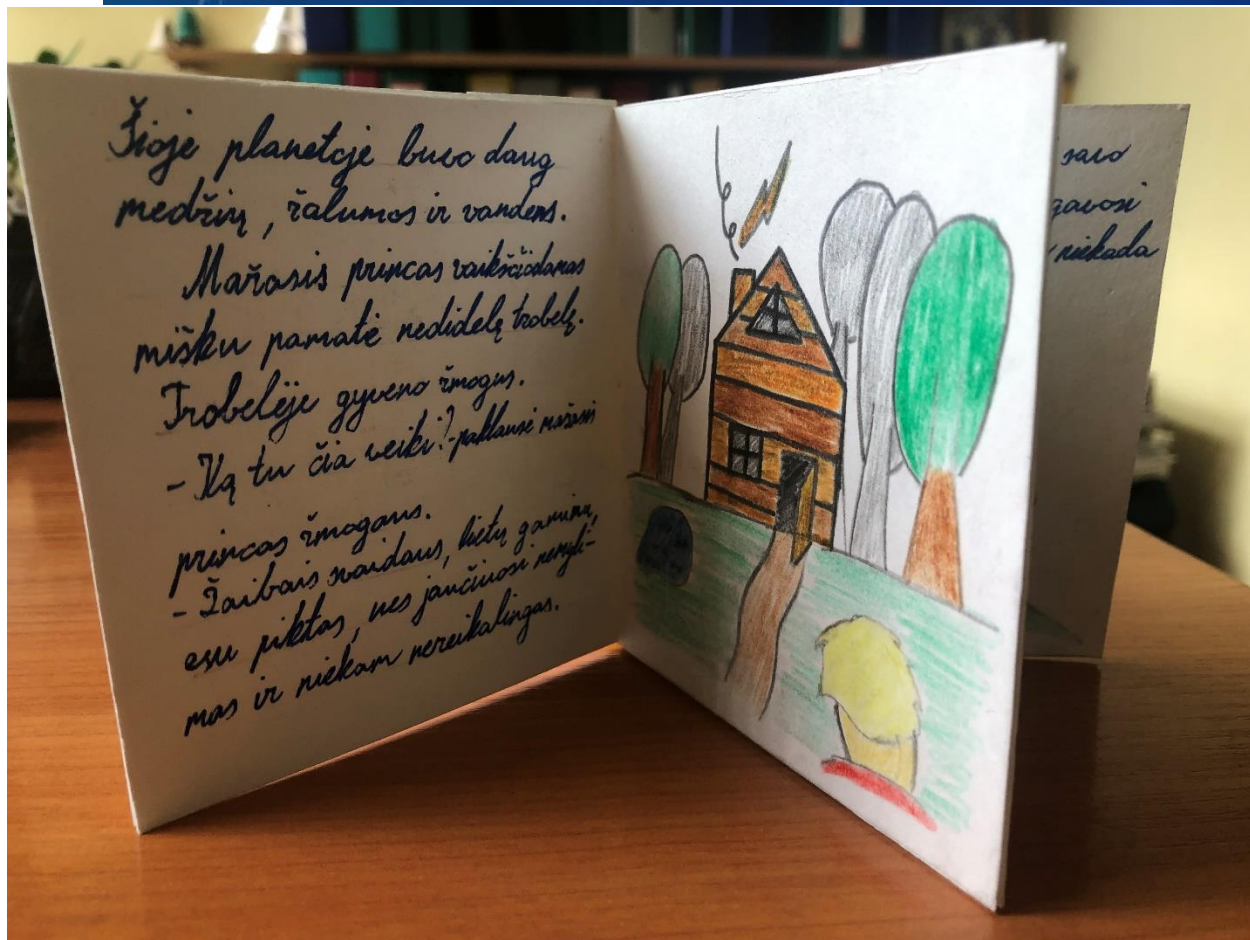 Šioje planetoje buvo daug
medžių, žalumos ir vandens.
Mažasis princas vaikščiodamas
mišku pamatė nedidelę trobelę.
Trobelėje gyveno žmogus.
- Ką tu čia veiki? - paklausė mažasis
princas žmogaus.
- Žaibais svaidaus, lietų gaminu,
esu piktas, nes jaučiuosi nemyli-
mas ir niekam nereikalingas.
savo
gavosi
niekada